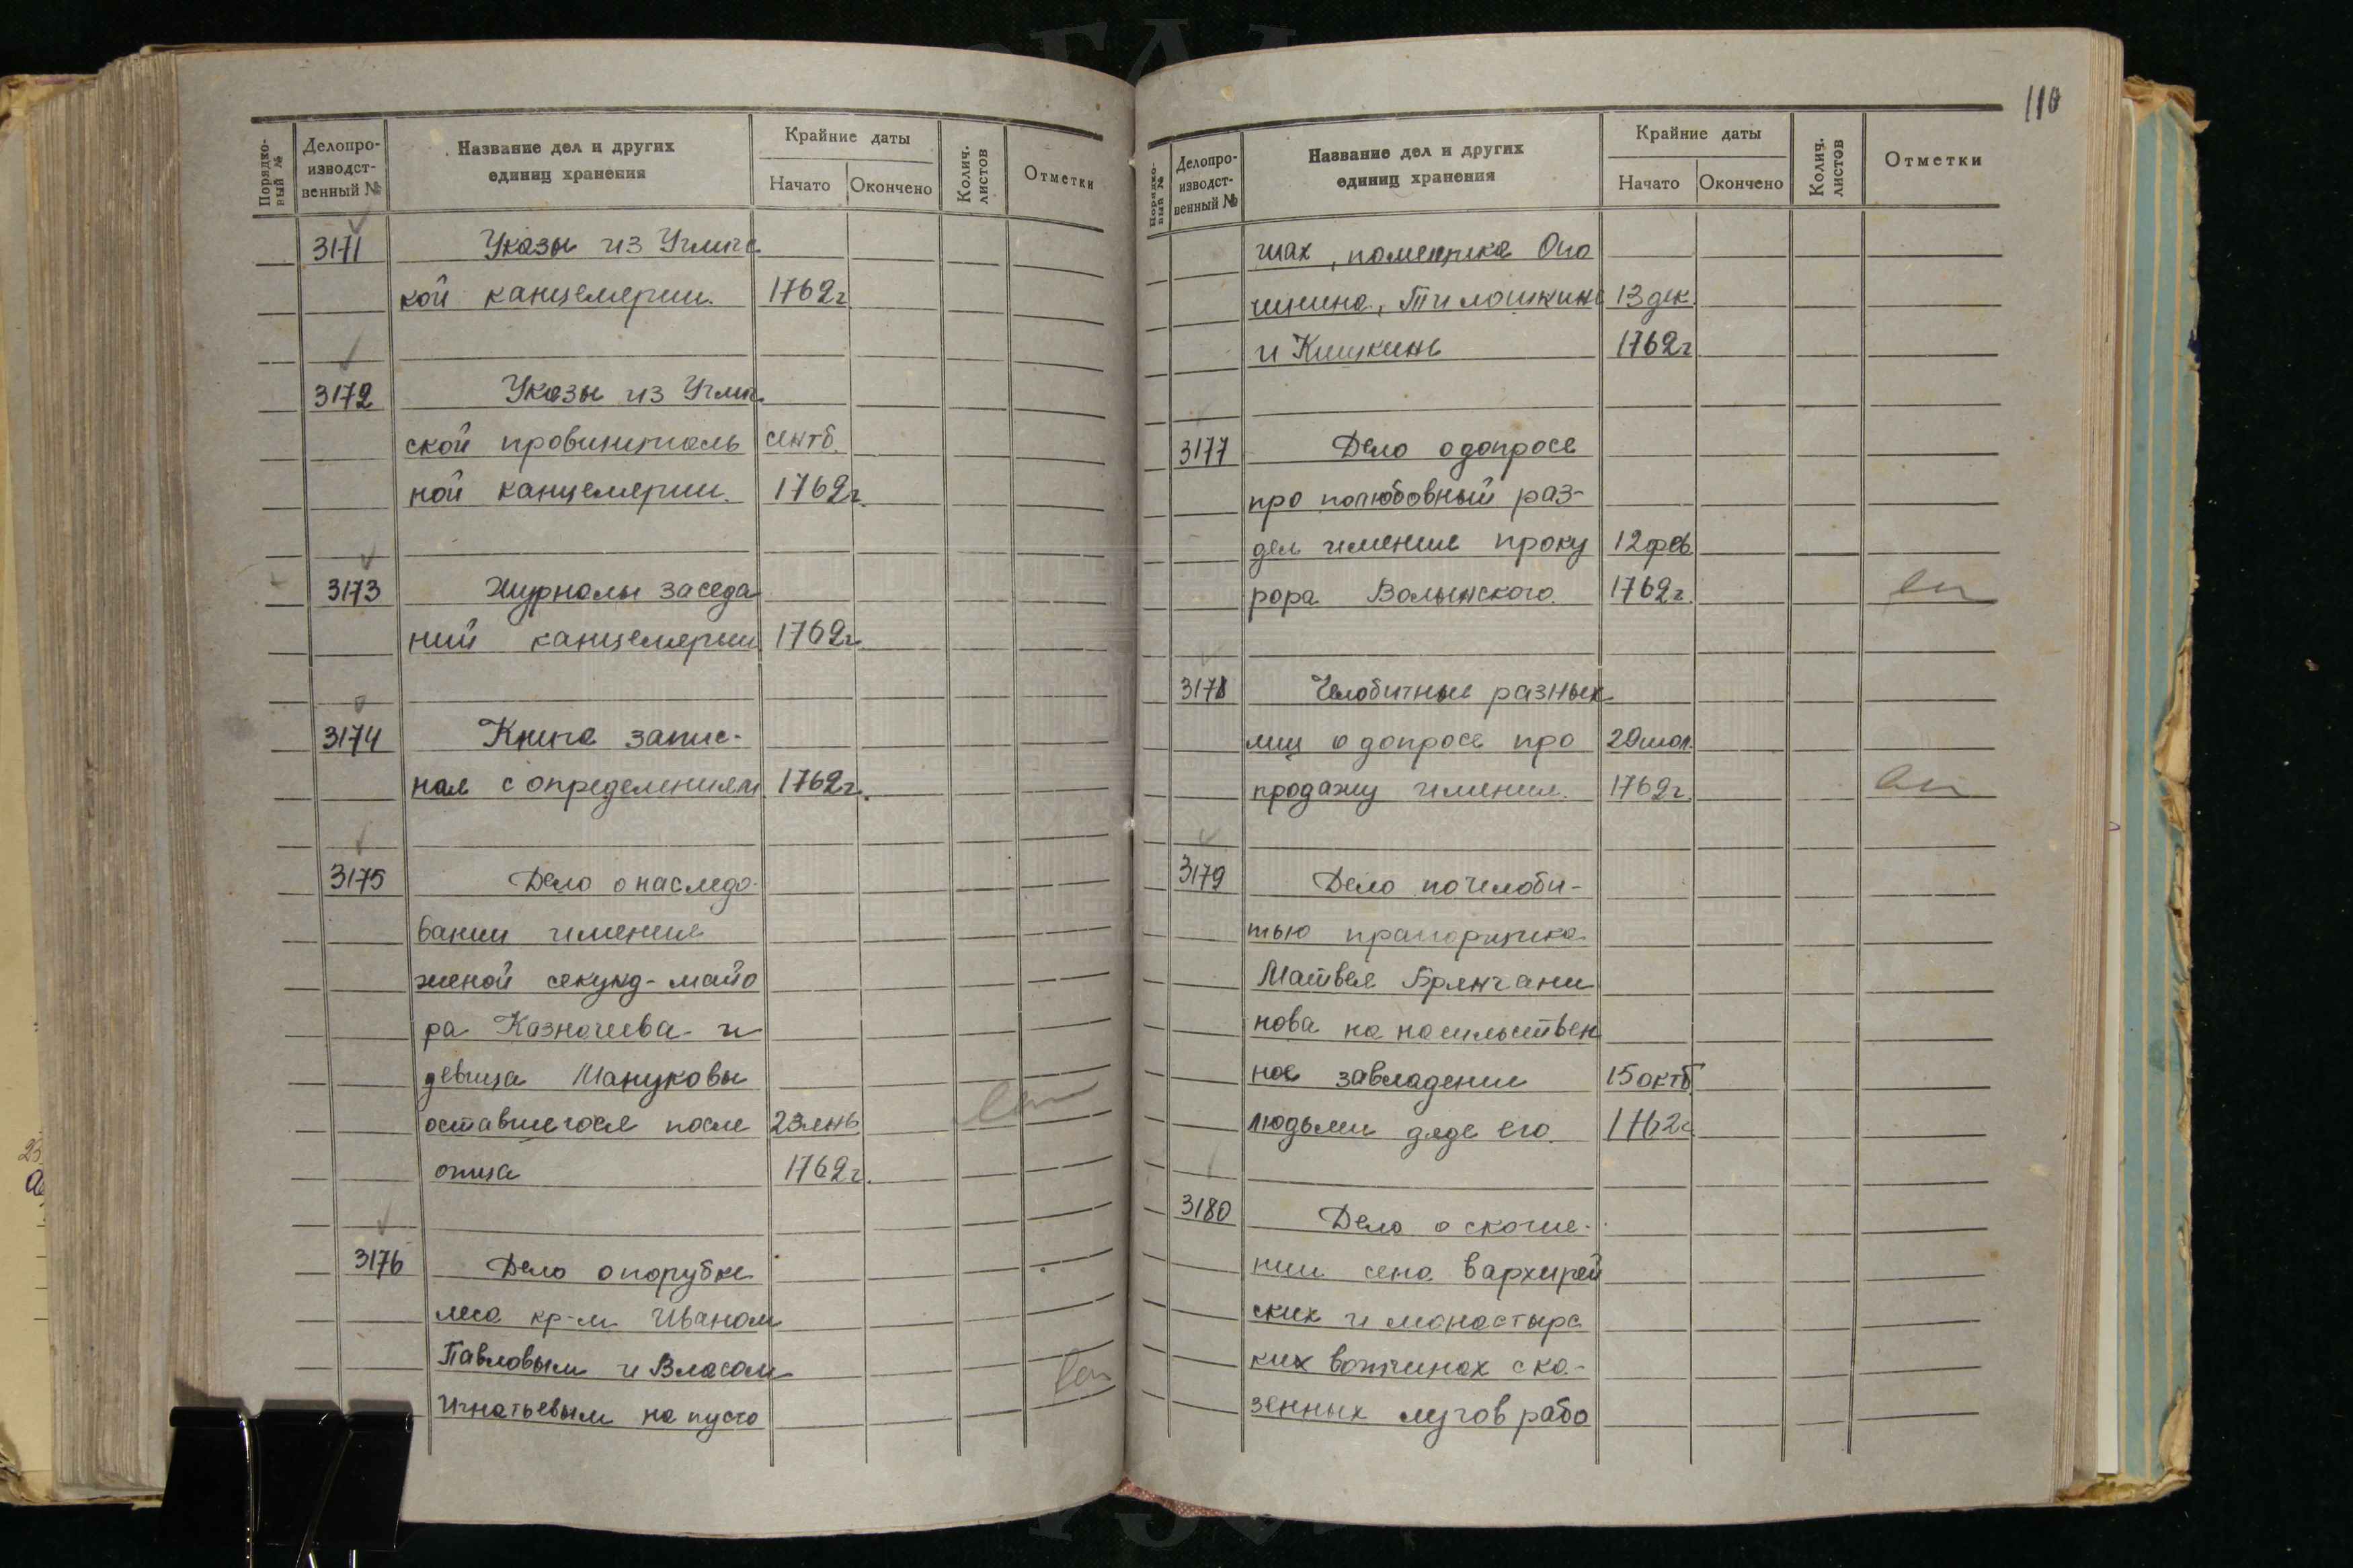 110
Порядко-
вый №
Делопро-
изводст-
венный №
Название дел и других
единиц хранения
Крайние даты
Начато
Окончено
Колич.
листов
Отметки
3171 Указы из Углич
кой канцелерии. 1762г
3172 Указы из Угли
ской провинциаль сентб.
ной канцелерии. 1762г.
3173 Журналы заседа
ний канцелерии 1762г.
3174 Книга запис-
ная с определениям 1762г.
3175 Дело о наследо-
вании имения
женой секунд-майо
ра Казначеева и
девица Мануковы
оставшегося после 23 янв
отца 1762г.
3176 Дело о порубке
леса кр-м Иваном
Павловым и Власом
Игнатьевым на пусто
Порядко-
вый №
Делопро-
изводст-
венный №
Название дел и других
единиц хранения
Крайние даты
Начато
Окончено
Колич.
листов
Отметки
шах, помещика Ога
13 дек.
и Кишкинь 1762г
3177 Дело о допросе
про полюбовный раз-
дел имение проку 12 фев
рора Волынского. 1762г.
3178 Челобитные разных
лиц о допросе про
продажу имения. 1762г.
3179 Дело по челоби-
тью прапорщика
Матвея Брянчани
нова на насильствен
ное завладение 15 октб
людьми дяде его. 1762г
3180 Дело о скоше-
нии сена в архирей
ских и монастырс
ких вотчинах с ка-
зенных лугов рабо